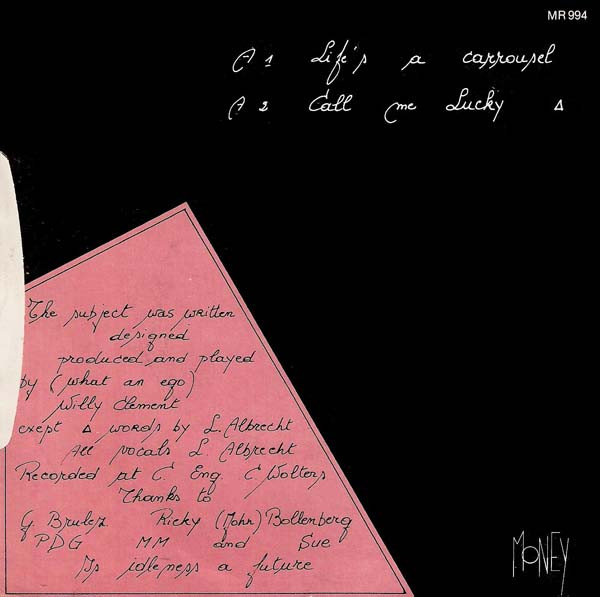 MR 994
A 1 Life's a carrousel
A 2 Call me Lucky Δ
The subject was written
designed
produced and played
by (what an ego)
Willy Clement
exept Δ words by L. Albrecht
All vocals L. Albrecht
Recorded at C. Eng. C Wolters
Thanks to
G. Brulez Ricky (Mohr) Bollenberg
PDG MM and Sue
Is idleness a future
MONEY